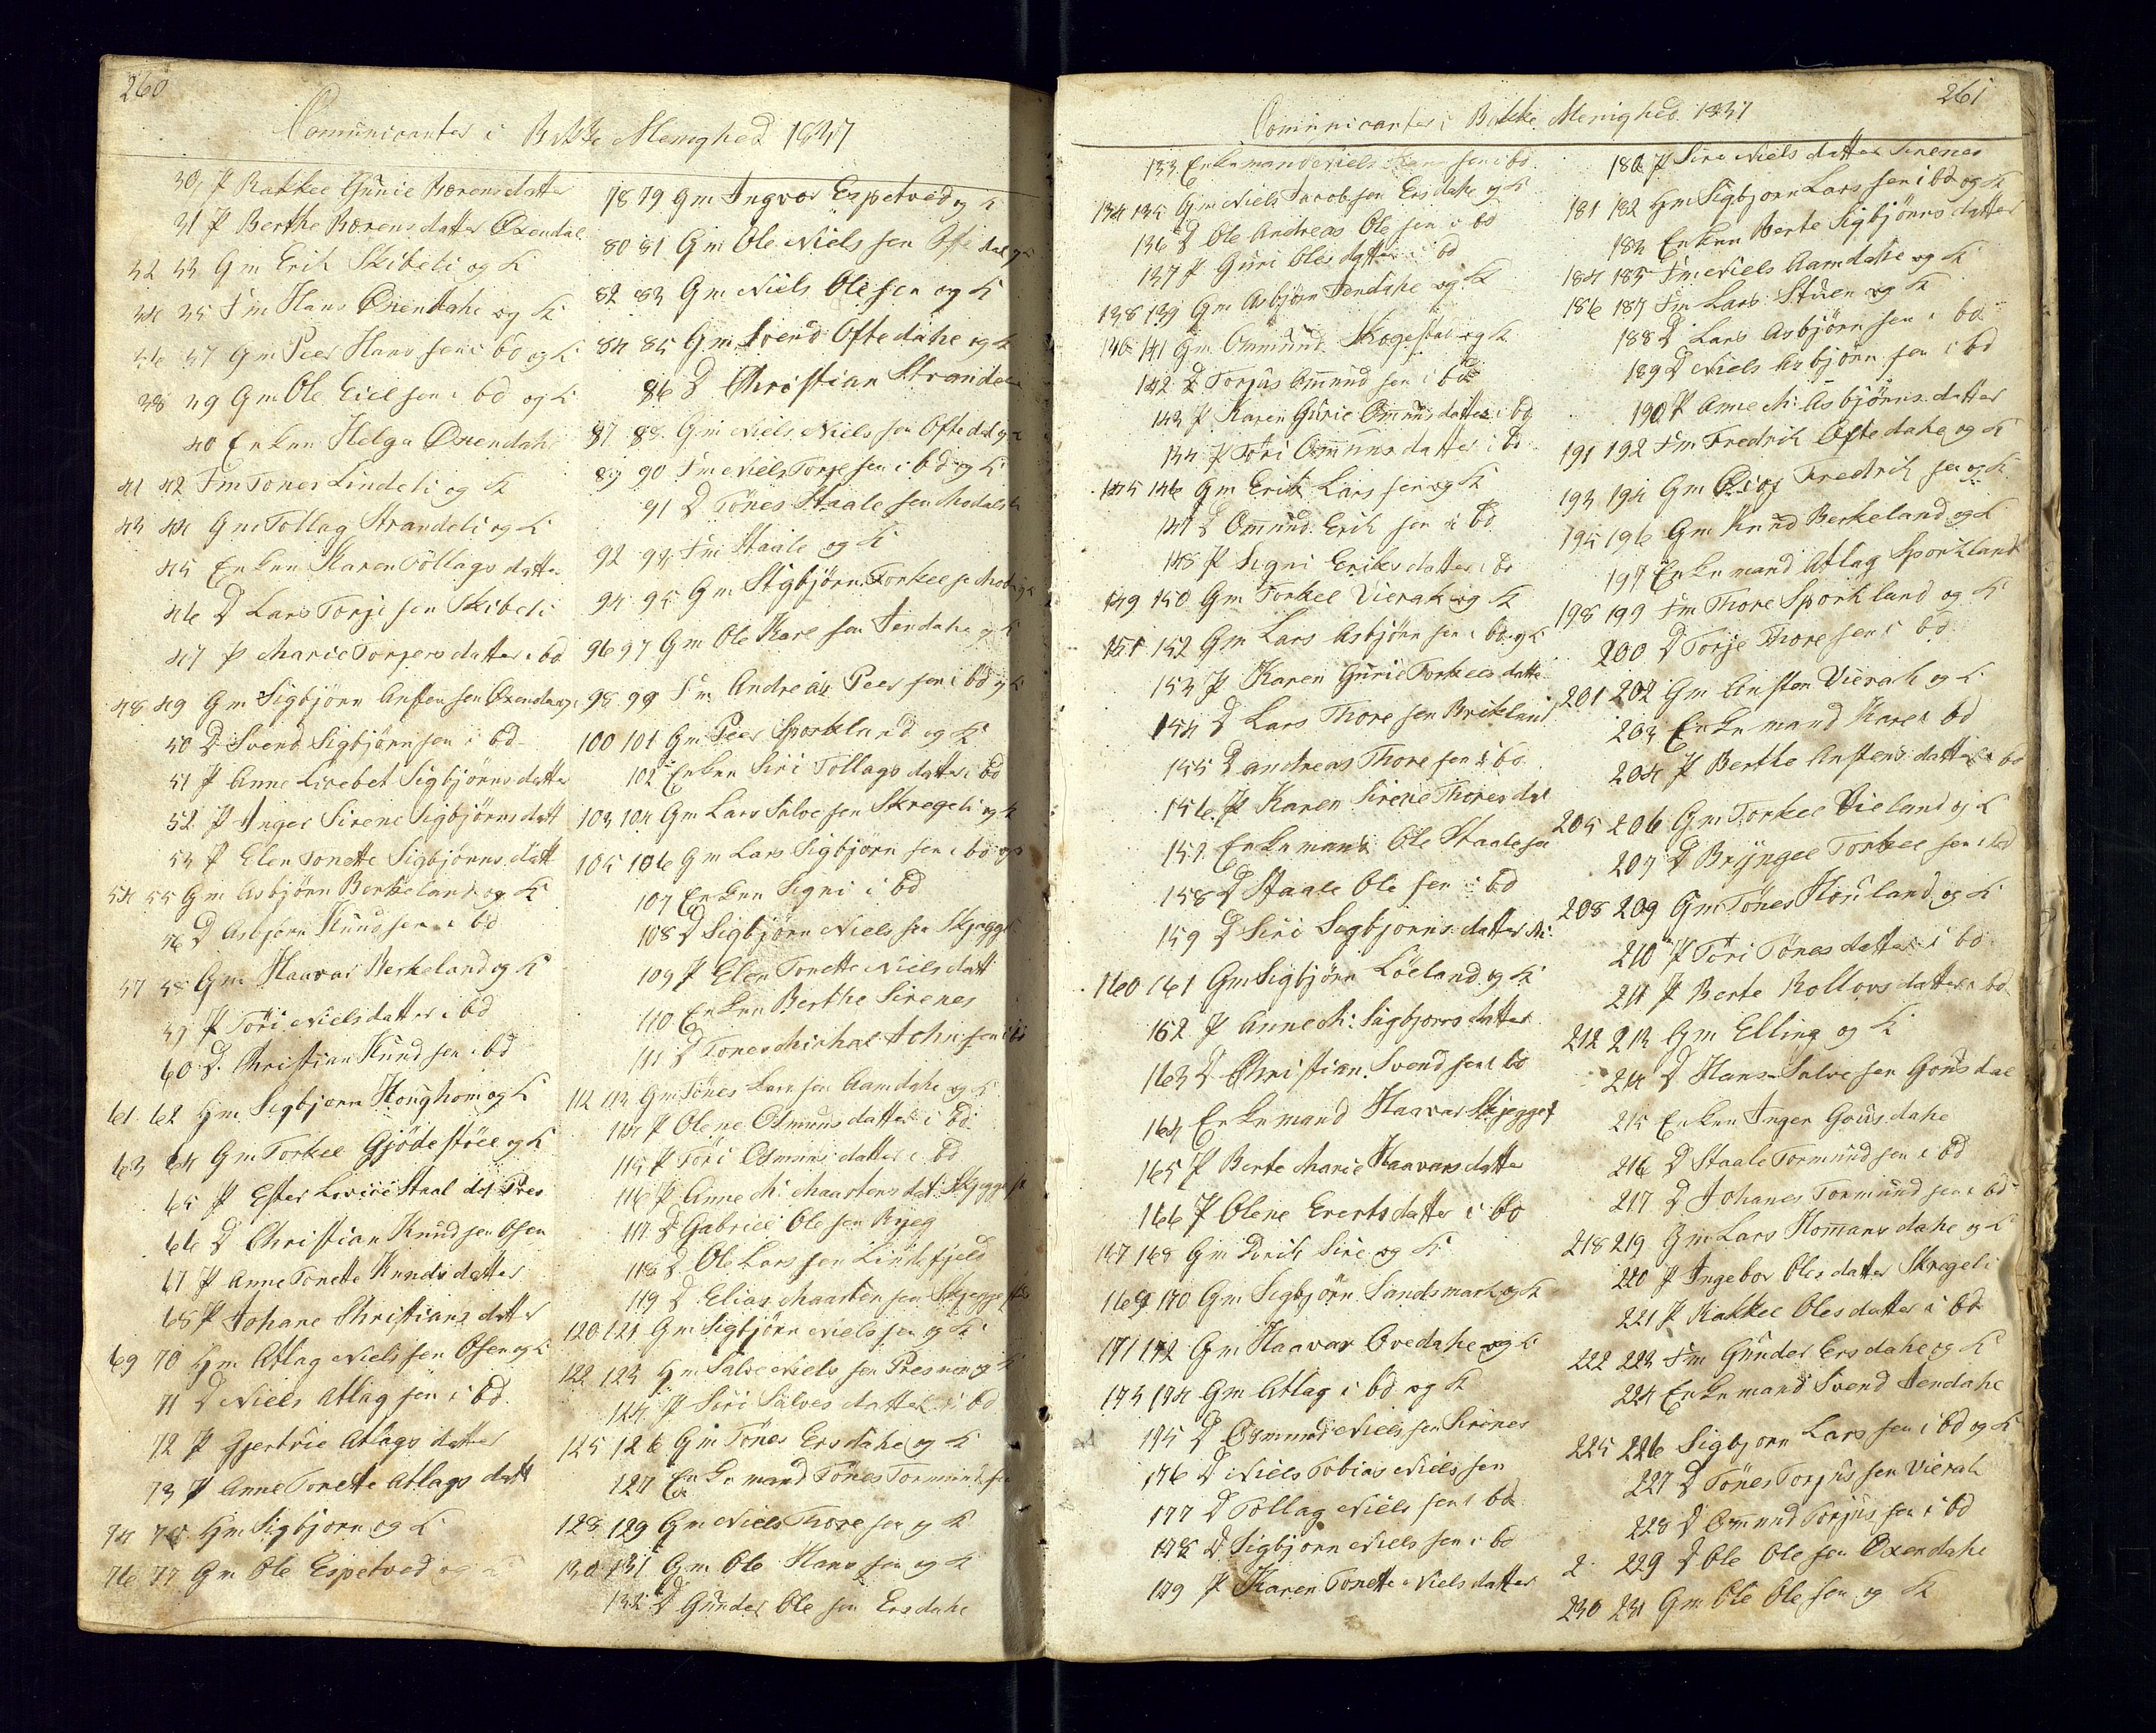 260
Comunicanter i Bakke Menighed 1837
30 P Rakkel Gurie Bærensdatter
31 P Berthe Bærens datter Øxendal
32 33 Gm Erik Skibeli og K
34 35 Fm Hans Øxendahl og K
36 37 Gm Peer Hans sen i bd og K
38 39 Gm Ole Eiel sen i bd og K
40 Enken Helga Øxendahl
41 42 Fm Tønes Lindeli og K
43 44 Gm Tollag Strandeli og K
45 Enken Karen Tollags datter
46 D Lars Torje sen Skibeli
47 P Marie Torjers datter i bd
48 49 Gm Sigbjørn Ansten sen Øxendal og
50 D Svend Sigbjørnsen i bd
51 P Anne Lisebet Sigbjørns datter
52 P Inger Sirene Sigbjørns datt
53 P Elen Tonette Sigbjørns datt
54 55 Gm Asbjørn Berkeland og K
56 D Asbjørn Knud sen i bd
57 58 Gm Haavar Berkeland og K
59 P Tøri Niels datter i bd
60 D Christian Knud sen i bd
61 62 Gm Sigbjørn Houghom og K
63 64 Gm Torkel Gjødestøel og K
65 P Ester Lovise Staal dat Pres
66 D Christian Knud sen Osen
67 P Anne Tonette Knuds datter
68 P Johane Christians datter
69 70 Gm Atlag Niels sen Osen og K
71 D Niels Atlag sen i bd
72 P Gjertrie Atlags datter
73 P Anne Tonette Atlags datt
74 75 Gm Sigbjorn og K
76 77 Gm Ole Espetved og K
78 79 Gm Ingvor Espetved og K
80 81 Gm Ole Niels sen Oftedal og K
82 83 Gm Niels Ole sen og K
84 85 Gm Svend Oftedahl og K
86 D Christian Strandeli
87 88 Gm Niels Niels sen Oftedal og K
89 90 Fm Niels Torje sen i bd og K
91 D Tønes Staale sen Modalsli
92 93 Fm Staale og K
94 95 Gm Sigbjørn Torkel s
96 97 Gm Ole Kare sen Jendahl og K
98 99 Fm Andreas Peer sen i bd og K
100 101 Gm Peer Sporkland og K
102 Enken Siri Tollags datter i bd
103 104 Gm Lars Salve sen Skregeli og K
105 106 Gm Lars Sigbjørn sen i bd og K
107 Enken Signi i bd
108 D Sigbjørn Niels sen Skjegge
109 P Elen Tonette Niels datt
110 Enken Berthe Sirenes
111 D Tønes Michal John sen i bd
112 113 Gm Tønes Lars sen Aamdahl og K
114 P Olene Osmunds datter i bd
115 P Tøri Osmuns datter i bd
116 P Anne M: Maartens dat: Skjegges
117 D Gabriel Ole sen Ryeg
118 D Ole Lars sen Lindefjeld
119 D Elias Maarten sen Skjegge
120 121 Gm Sigbjørn Niels sen og K
122 123 Gm Salve Niels sen Presnes og K
124 P Siri Salves datter i bd
125 126 Gm Tønes Ersdahl og K
127 Enkemand Tønes Tormund sen
128 129 Gm Niels Thore sen og K
130 131 Gm Ole Hans sen og K
132 D Gunder Ole sen Ersdahl
261
Comunicanter i Bakke Menighed 1837
133 Enkemand Niels sen i bd
134 135 Gm Niels Jacob sen Ersdahl og K
136 D Ole Andreas Ole sen i bd
137 P Guri Oles datter i bd
138 139 Gm Asbjørn Jendahl og K
140 141 Gm Ommund Skogestad og K
142 D Torjus Omund sen i bd
143 P Karen Gurie Omuns datter i bd
144 P Tøri Omuns datter i bd
145 146 Gm Erik Lars sen og K
147 D Omund Erik sen i bd
148 P Signi Eriks datter i bd
149 150 Gm Torkel Vierak og K
151 152 Gm Lars Asbjørn sen i bd og K
153 P Karen Gurie Torkels datte
154 D Lars Thore sen Birkland
155 D Andreas Thore sen i bd
156 P Karen Sirene Thores dat
157 Enkemand Ole Staale sen
158 D Staale Ole sen i bd
159 D Siri Sigbjorns datter
160 161 Gm Sigbjørn Løeland og K
162 P Anne M: Sigbjorns datter
163 D Christian Svend sen i bd
164 Enkemand Haavar Skjegges
165 P Berte Marie Haavars datte
166 P Olene Everts datter i bd
167 168 Gm Dirik Sire og K
169 170 Gm Sigbjørn Sandsmark og K
171 172 Gm Haavar Ovedahl og K
173 174 Gm Atlag i bd og K
175 D Osmund Niels sen Sirenes
176 D Niels Tobias Niels sen
177 D Tollag Niels sen i bd
178 D Sigbjorn Niels sen i bd
179 P Karen Tonette Niels datter
180 P Siri Niels datter Sirenes
181 182 Gm Sigbjorn Lars sen i bd og K
183 Enken Berte Sigbjørns datter
184 185 Fm Niels Aamdahl og K
186 187 Fm Lars Stuen og K
188 D Lars Asbjørn sen i bd
189 D Niels Asbjørn sen i bd
190 P Anne M: Asbjørns datter
191 192 Fm Fredrik Oftedahl og K
193 194 Gm Fredrik sen og K
195 196 Gm Knud Berkeland og K
197 Enkemand Atlag Sporkland
198 199 Fm Thore Sporkland og K
200 D Torje Thore sen i bd
201 202 Gm Ansten Vierak og K
203 Enkemand Karel bd
204 P Berthe Anstens datter i bd
205 206 Gm Torkel Vieland og K
207 D Bryngel Torkel sen i bd
208 209 Gm Tønes Houland og K
210 P Tøri Tønes datter i bd
211 P Berte Rollovs datter i bd
212 213 Gm Elling og K
214 D Hans Salve sen Gousdal
215 Enken Inger Gousdahl
216 D Staale Tormund sen i bd
217 D Johanes Tormund sen i bd
218 219 Gm Lars Homansdahl og K
220 P Ingebor Oles datter Skregeli
221 P Rakkel Oles datter i bd
222 223 Fm Gunder Ersdahl og K
224 Enkemand Svend Jendahl
225 226 Sigbjorn Lars sen i bd og K
227 D Tønes Torjus sen Vierak
228 D Osmund Torjus sen i bd
2 229 D Ole Ole sen Øxendahl
230 231 Gm Ole Ole sen og K